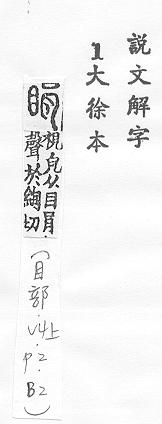 説文解字
1大徐本
睊
視皃从目肙
聲於絢切
(目部.V4上.P2.B2)